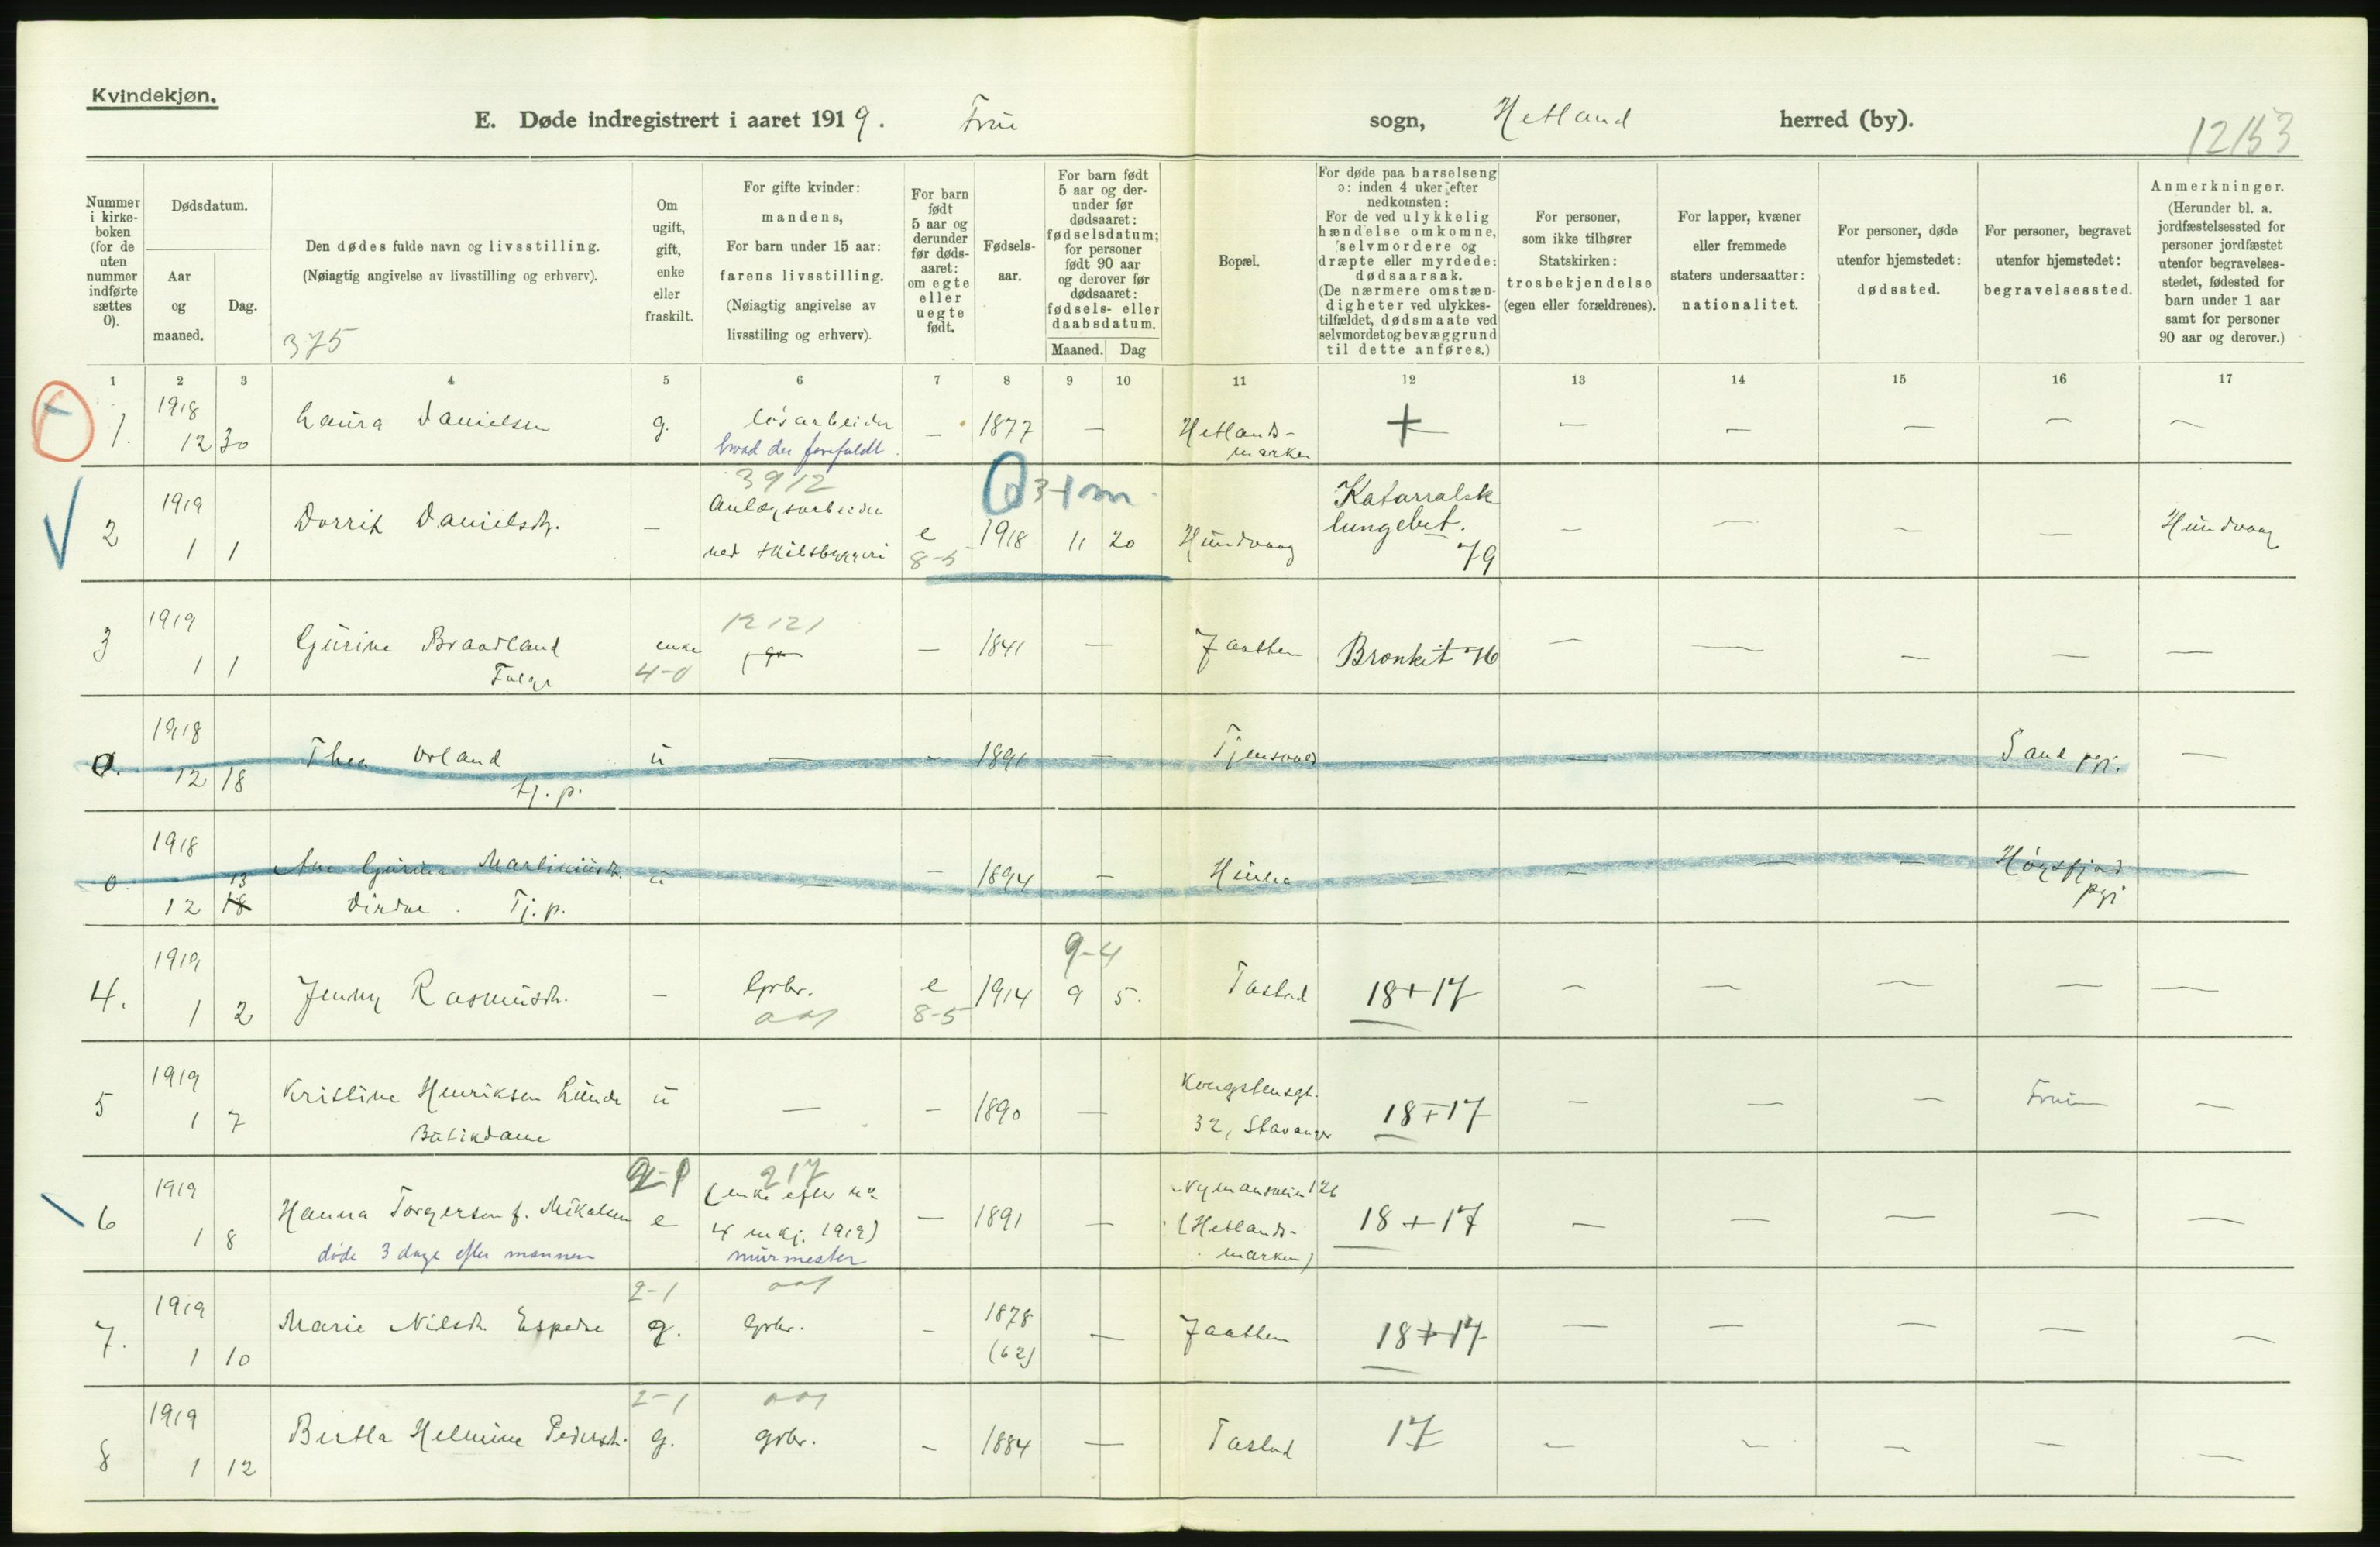 Kvindekjøn.
E. Døde indregistrert i aaret 1919. Frue sogn, Hetland herred (by).
12153
Nummer i kirkeboken (for de uten nummer indførte sættes 0).
Dødsdatum.
Aar og maaned.
Dag.
Den dødes fulde navn og livsstilling.
(Nøiagtig angivelse av livsstilling og erhverv).
375
Om ugift, gift, enke eller fraskilt.
For gifte kvinder: mandens,
For barn under 15 aar: farens livsstilling.
(Nøiagtig angivelse av livsstiling og erhverv).
For barn født 5 aar og derunder før dødsaaret: om egte eller uegte født.
Fødselsaar.
For barn født 5 aar og derunder før dødsaaret: fødselsdatum; for personer født 90 aar og derover før dødsaaret: fødsels- eller daabsdatum.
Maaned. Dag
Bopæl.
For døde paa barselseng ɔ: inden 4 uker efter nedkomsten:
For de ved ulykkelig hændelse omkomne, selvmordere og dræpte eller myrdede: dødsaarsak.
(De nærmere omstændigheter ved ulykkestilfældet, dødsmaate ved selvmordet og bevæggrund til dette anføres.)
For personer, som ikke tilhører Statskirken: trosbekjendelse (egen eller forældrenes).
For lapper, kvæner eller fremmede staters undersaatter: nationalitet.
For personer, døde utenfor hjemstedet: dødssted.
For personer, begravet utenfor hjemstedet: begravelsessted.
Anmerkninger.
(Herunder bl. a. jordfæstelsessted for personer jordfæstet utenfor begravelsesstedet, fødested for barn under 1 aar samt for personer 90 aar og derover.)
1 2 3 4 5 6 7 8 9 10 11 12 13 14 15 16 17
1. 1918 12 30 Laura Danielsen g. løsarbeider — 1877 — Hetlandsmarken + — — — — —
hvad der forefaldt.
3912
2 1919 1 1 Dorrit Danielsdtr. — Anlægsarbeider ved skibsbyggeri e 8-5 1918 11 20 Hundvaag Katarralsk lungebet. 79 — — — — Hundvaag
1 m
12121
3 1919 1 1 Gurine Braadland enke 4-0 — 1841 — Jaatten Bronkit 76 — — — — —
0. 1918 12 18 Thea Orland tj. p. u — — 1891 — Tjensvold — — — — Sand pgj. —
0 1918 12 13 18 Ane Gurine Martinusdtr. Dirdae. Tj. p. u — — 1894 — Hinna — — — — Høgsfjord pgj —
9-4
4. 1919 1 2 Jenny Rasmusdtr. — Grbr. e 8-5 1914 9 5. Tasta 18+17 — — — — —
5 1919 1 7 Kristine Henriksen Lunde Butikdame u — — 1890 — Kongstensgt. 32, Stavanger 18+17 — — — Frue —
217
6 1919 1 8 Hanna Torgersen f. Mikalsen e (enke efter no 4 mkj. 1919) — 1891 — Nymansvein 126 (Hetlandsmarken) 18+17 — — — — —
døde 3 dage efter mannen
murmester
2-1
7. 1919 1 10 Marie Nilsdtr. Espedse g. Grbr. — 1878 (62) — Jaatten 18+17 — — — — —
2-1
8 1919 1 12 Bertha Helmine Pedersdtr. g. grbr. — 1884 — Tasta 17 — — — — —